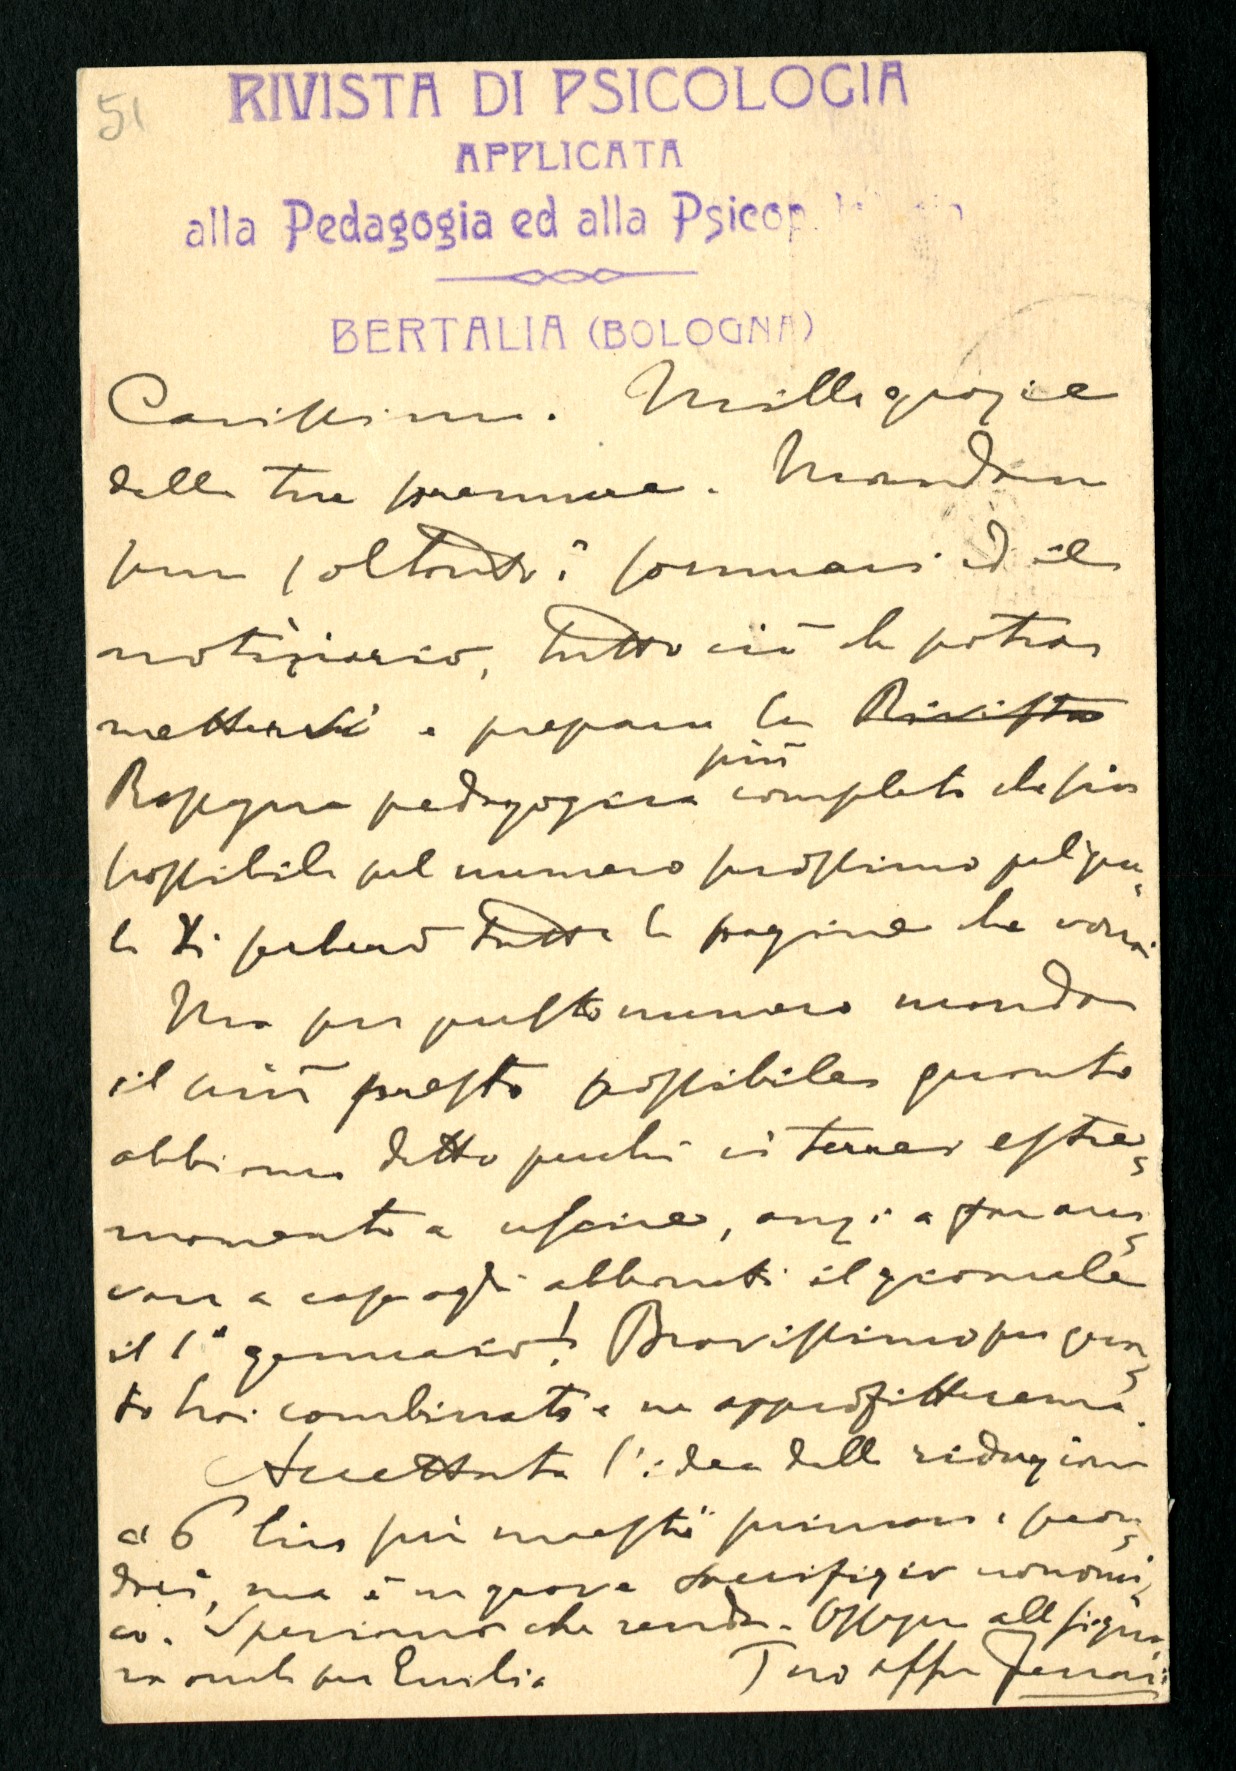 51
RIVISTA DI PSICOLOGIA
APPLICATA
alla Pedagogia ed alla Psicop
BERTALIA (BOLOGNA)
Carissimo. Mille grazie
delle tue premure. Mandami
pure soltanto i sommari ed il
notiziario, tutto ciò che potrai
metterci e prepara la Rivista
Rassegna pedagogica più completa che sia
possibile pel numero prossimo pel qua-
le Ti serberò tutte le pagine che vorrai
Ma per questo numero manda
il più presto possibile quanto
abbiamo detto perché ci terrei estre-
mamente a uscire, anzi a far arri-
vare a casa agli abbonati il giornale
il 1° gennaio! Bravissimo per quan-
to hai combinato e ne approfitteremo.
Accettata l'idea della riduzione
a 6 lire pei maestri primari e
ma è un grave sacrifizio economi-
co. Speriamo che renda. Ossequi alla Signo-
ra anche per Emilia Tuo aff. Ferrari